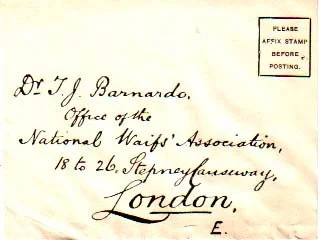 PLEASE
AFFIX STAMP
BEFORE
POSTING.
Dr. T. J. Barnardo,
Office of the
National Waifs' Association,
18 to 26, Stepney Causeway,
London,
E.